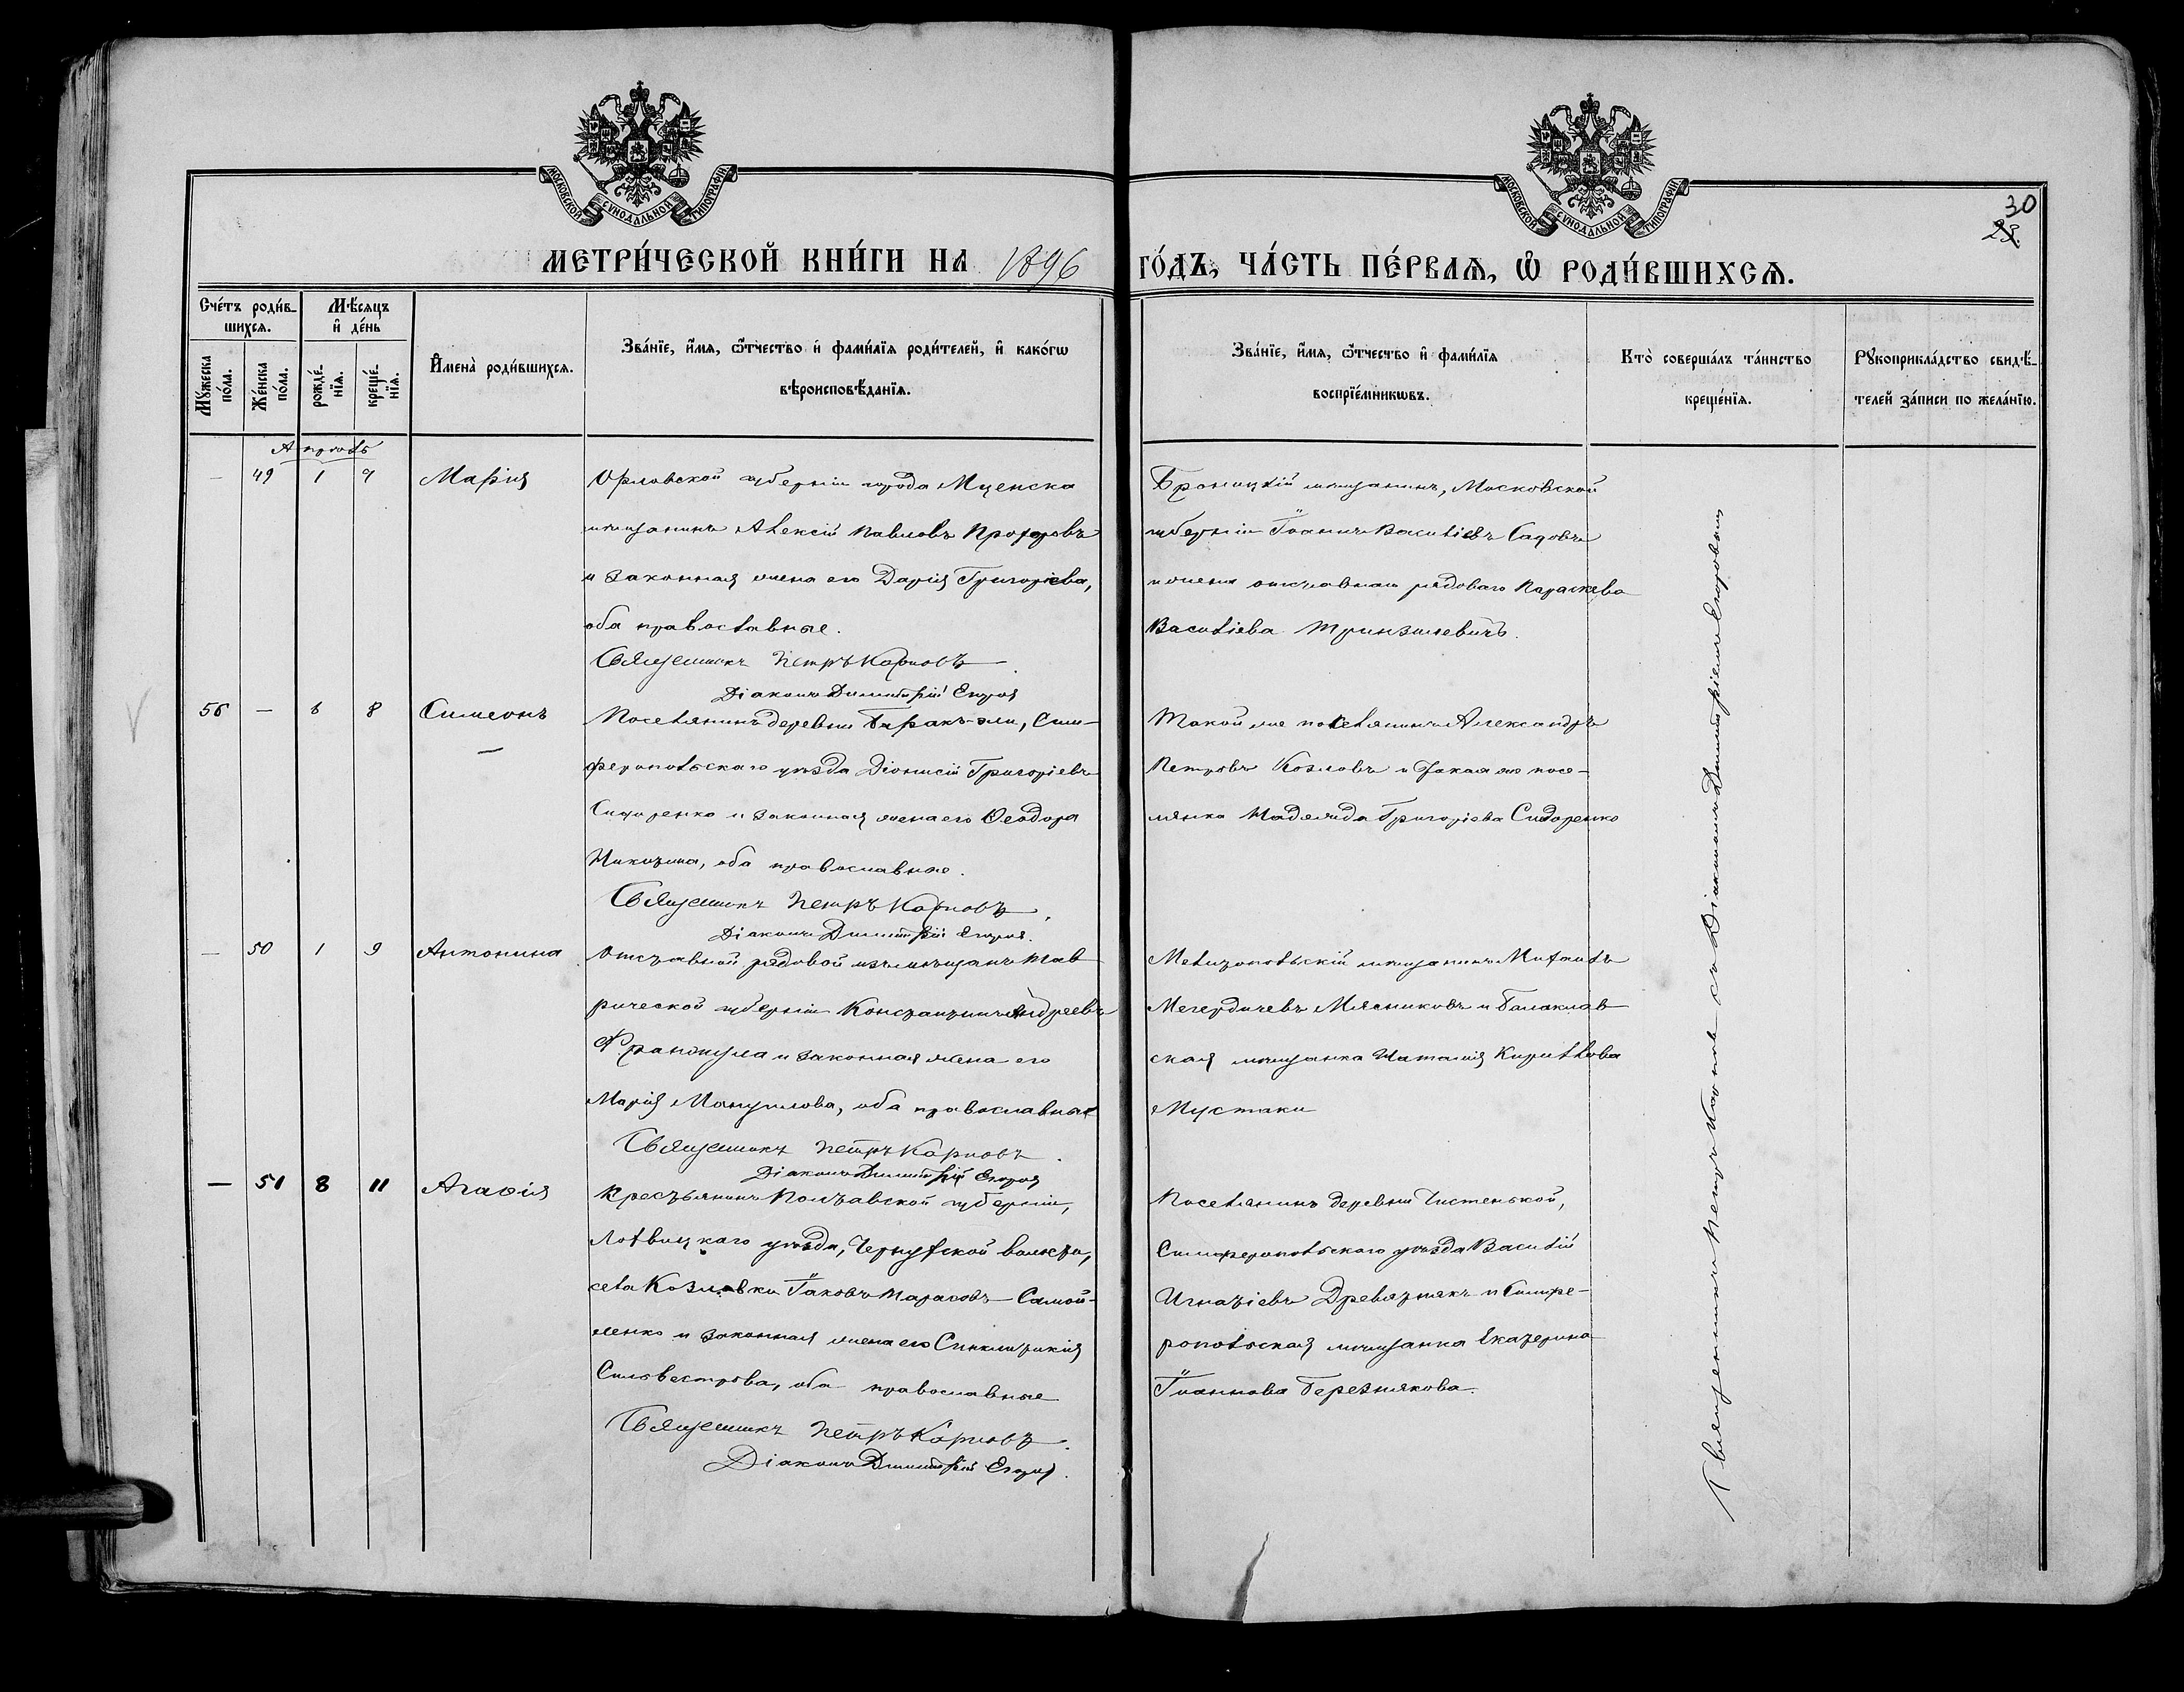 МОСКОВСКОЙ СѴНОДАЛЬНОЙ ТИПОГРАФІИ
МОСКОВСКОЙ СѴНОДАЛЬНОЙ ТИПОГРАФІИ
30
МЕТРИ́ЧЕСКОЙ КНИ́ГИ НА 1896 ГО́ДЪ, ЧА́СТЬ ПЕ́РВАѦ, Ѡ҆ РОДИ́ВШИХСѦ.
Сче́тъ роди́в-
шихсѧ.
Мѣ́сѧцъ
и҆ де́нь
Мꙋ́жеска по́ла.
Же́нска по́ла.
рожде́-
нїѧ.
креще́-
нїѧ.
И҆мена̀ роди́вшихсѧ.
Зва́нїе, и҆́мѧ, ѻ҆́тчество и҆ фами́лїѧ роди́телей, и҆ како́гѡ
вѣроисповѣ́данїѧ.
Зва́нїе, и҆́мѧ, ѻ҆́тчество и҆ фами́лїѧ
воспрїе́мникѡвъ.
Кто̀ соверша́лъ та́инство
креще́нїѧ.
Рꙋкоприкла́дство свидѣ́-
телей за́писи по жела́нїю.
Апрѣль
— 49 1 7 Марія
Орловской губерніи города Мценска
мѣщанинъ Алексій Павловъ Прозоровъ
и законная жена его Дарія Григоріева,
оба православные.
Священникъ Петръ Карповъ
Діаконъ Димитрій Егоров
Бронницкій мѣщанинъ, Московской
губерніи Іоаннъ Василіевъ Садовъ
и жена отставнаго рядоваго Параскева
Василіева
56 — 6 8 Симеонъ
Поселянинъ деревни Биракъ-эли, Сим-
феропольскаго уѣзда Діонисій Григоріевъ
Сидоренко и законная жена его Ѳеодора
Никитина, оба православные.
Священникъ Петръ Карповъ
Діаконъ Димитрій Егоров
Такой же поселянинъ Александръ
Петровъ Козловъ и такая же посе-
лянка Надежда Григоріева Сидоренко
— 50 1 9 Антонина
Отставной рядовой изъ мѣщанъ Тав
рической губерніи Константинъ Андреевъ
Франжула и законная жена его
Марія Мануилова, оба православные
Священникъ Петръ Карповъ
Діаконъ Димитрій Егоров
Мелитопольскій мѣщанинъ Михаилъ
Мегердичевъ Мясниковъ и Балаклав
ская мѣщанка Наталія Кириллова
Мустаки
— 51 8 11 Агаѳія
Крестьянинъ Полтавской губерніи,
Лохвицкаго уѣзда, Чернухской волости,
села Козловки Іаковъ Тарасовъ Самой-
ленко и законная жена его Синклитикія
Сильвестрова, оба православные
Священникъ Петръ Карповъ
Діаконъ Димитрій Егоров
Поселянинъ деревни Чистенькой,
Симферопольскаго уѣзда Василій
Игнатіевъ Древятнякъ и Симфе-
ропольская мѣщанка Екатерина
Іоаннова Березнякова.
Священникъ Петръ Карповъ съ Діакономъ Димитріемъ Егоровымъ